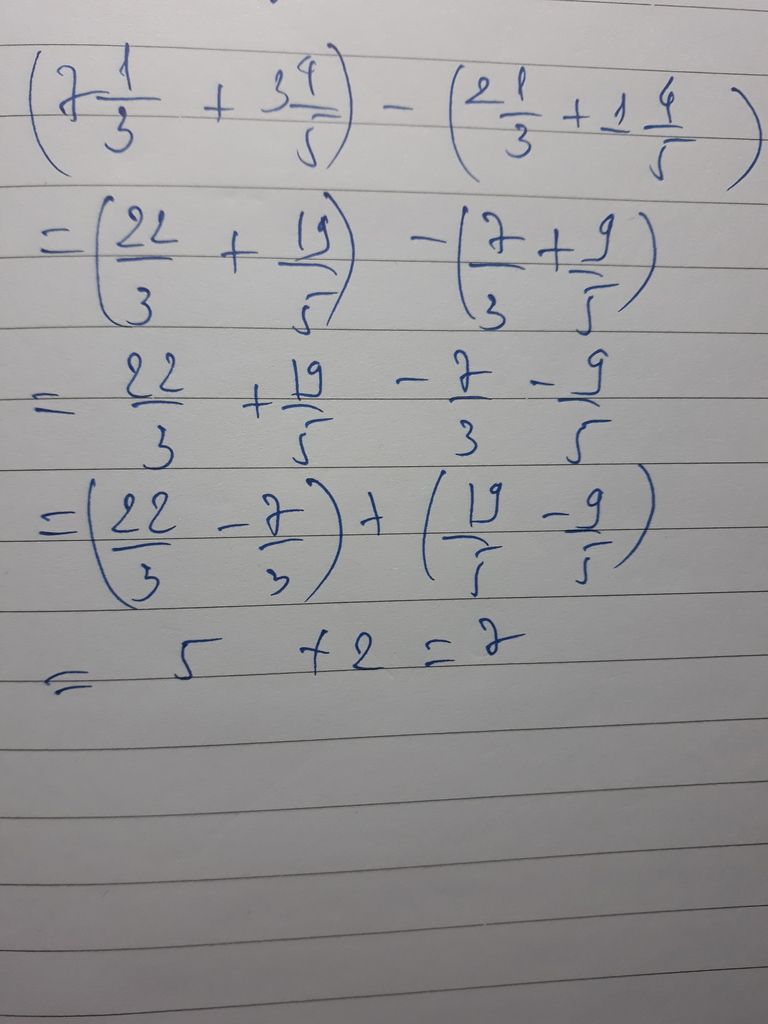 (7 1/3 + 3 4/5) - (2 1/3 + 1 4/5)
= (22/3 + 19/5) - (7/3 + 9/5)
= 22/3 + 19/5 - 7/3 - 9/5
= (22/3 - 7/3) + (19/5 - 9/5)
= 5 + 2 = 7